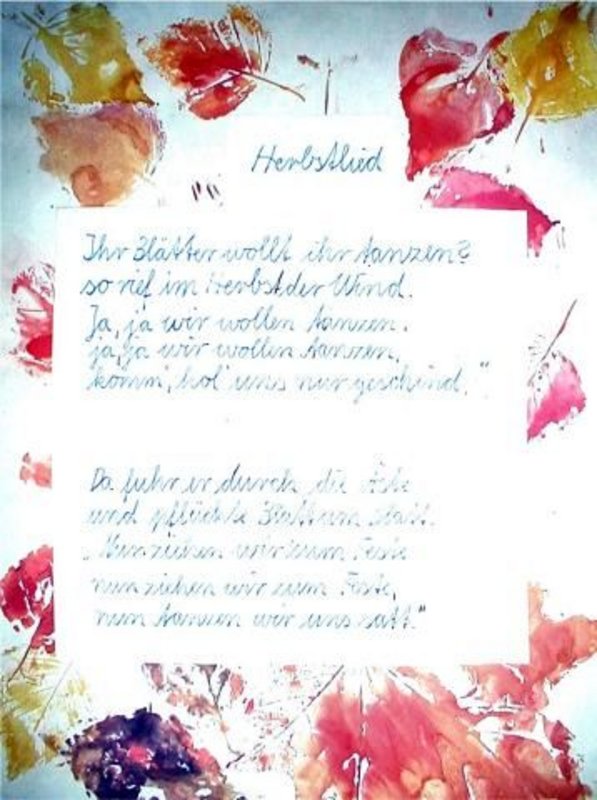 Herbstlied
Ihr Blätter wollt ihr tanzen?
so rief im Herbst der Wind.
Ja, ja wir wollen tanzen,
ja, ja wir wollen tanzen,
komm', hol' uns nur geschind."
Da fuhr er durch die Äste
und pflückte Blatt um Blatt.
„Nun ziehen wir zum Feste
nun ziehen wir zum Feste,
nun tanzen wir uns satt."